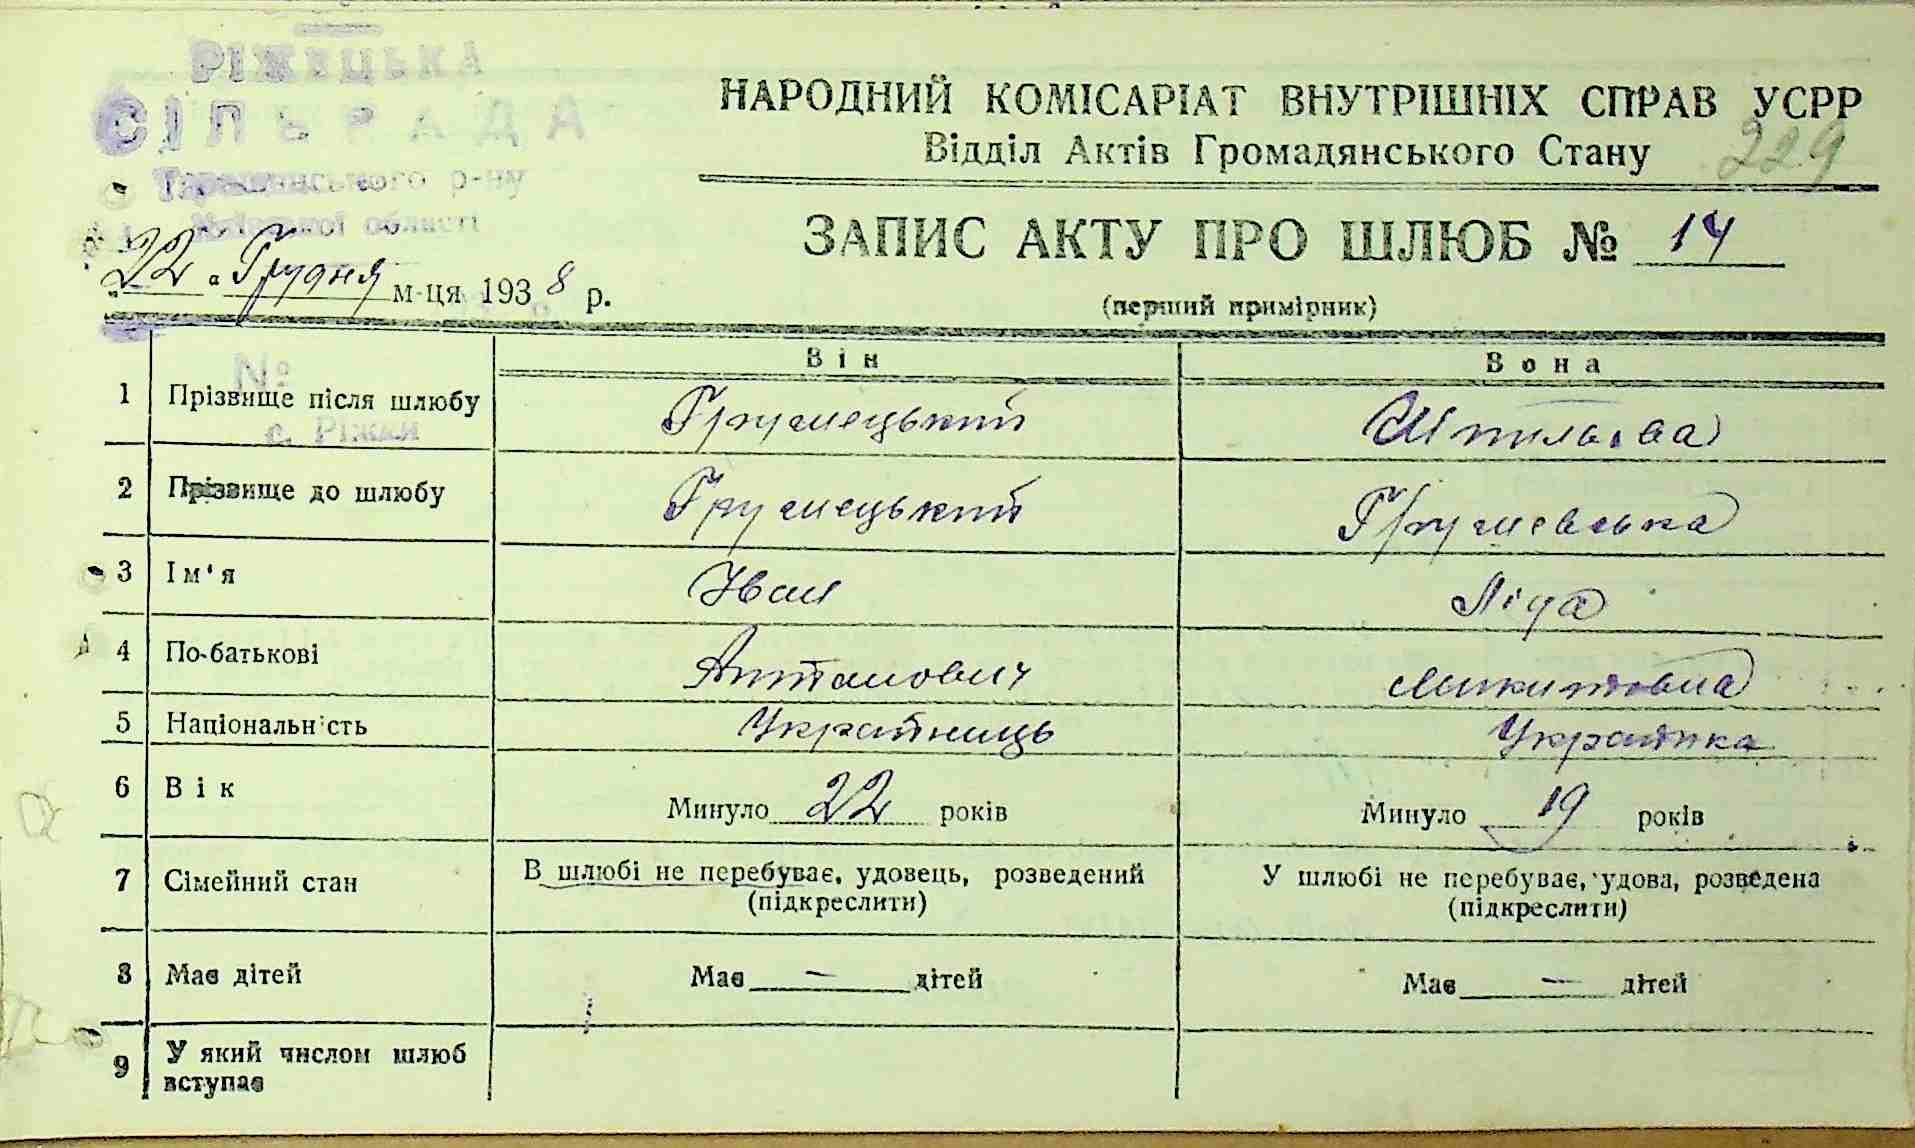 РІЖЕЦЬКА
СІЛЬРАДА
р-ну
області
№
с. Ріжки
НАРОДНИЙ КОМІСАРІАТ ВНУТРІШНІХ СПРАВ УСРР
Відділ Актів Громадянського Стану
229
ЗАПИС АКТУ ПРО ШЛЮБ № 14
(перший примірник)
„22" Грудня м-ця 1938 р.
Він Вона
1 Прізвище після шлюбу
2 Прізвище до шлюбу
3 Ім'я Іван Ліда
4 По-батькові Антонович Микитовна
5 Національність Українець Українка
6 Вік Минуло 22 років Минуло 19 років
7 Сімейний стан В шлюбі не перебуває, удовець, розведений У шлюбі не перебуває, удова, розведена
(підкреслити) (підкреслити)
8 Має дітей Має — дітей Має — дітей
9 У який числом шлюб
вступає